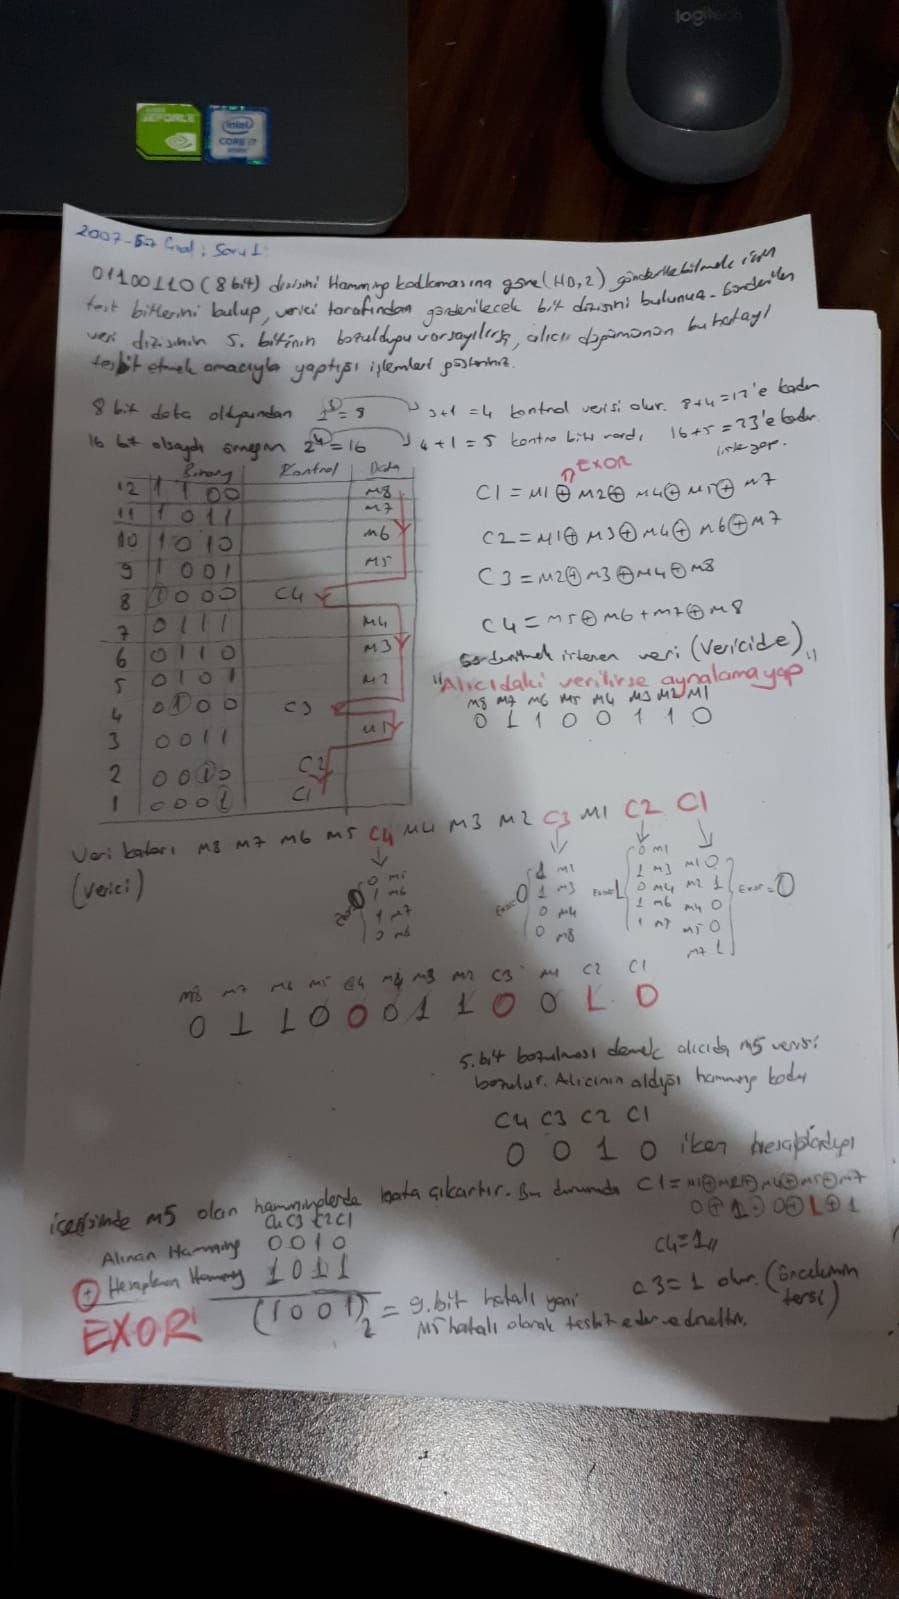 logitech
GEFORCE
intel
CORE i7
2007- Final: Soru 1:
01100110 (8 bit) dizisini Hamming kodlamasına göre (HD,2) gönderilebilmek için
test bitlerini bulup, verici tarafından gönderilecek bit dizisini bulunuz. Gönderilen
veri dizisinin 5. bitinin bozulduğu varsayılırsa, alıcı donanımın bu hatayı
tesbit etmek amacıyla yaptığı işlemleri gösteriniz.
8 bit data olduğundan 2^3 = 8 3+1 = 4 kontrol verisi olur. 8+4=12'e kadar
16 bit olsaydı örneğin 2^4 = 16 4+1 = 5 kontrol biti vardı, 16+5= 'e kadar
liste yap.
Binary Kontrol Data
12 1 1 0 0 M8
11 1 0 1 1 M7
10 1 0 1 0 M6
9 1 0 0 1 M5
8 1 0 0 0 C4
7 0 1 1 1 M4
6 0 1 1 0 M3
5 0 1 0 1 M2
4 0 1 0 0 C3
3 0 0 1 1 M1
2 0 0 1 0 C2
1 0 0 0 1 C1
EXOR
C1 = M1 ⊕ M2 ⊕ M4 ⊕ M5 ⊕ M7
C2 = M1 ⊕ M3 ⊕ M4 ⊕ M6 ⊕ M7
C3 = M2 ⊕ M3 ⊕ M4 ⊕ M8
C4 = M5 ⊕ M6 + M7 ⊕ M8
Gönderilmek istenen veri (Vericide)
"Alıcıdaki verilirse aynalama yap"
M8 M7 M6 M5 M4 M3 M2 M1
0 1 1 0 0 1 1 0
Veri katarı M8 M7 M6 M5 C4 M4 M3 M2 C3 M1 C2 C1
(Verici)
Exor 0
0 M5
1 M6
1 M7
0 M8
Exor 0
1 M1
1 M3
0 M4
0 M8
Exor 1
0 M1
1 M3
0 M4
1 M6
1 M7
M1 0
M2 1
M4 0
M5 0
M7 1
Exor = 0
M8 M7 M6 M5 C4 M4 M3 M2 C3 M1 C2 C1
0 1 1 0 0 0 1 1 0 0 1 0
5. bit bozulması demek alıcıda M5 verisi
bozulur. Alıcının aldığı hamming kodu
C4 C3 C2 C1
0 0 1 0 iken hesapladığı
içerisinde M5 olan hamminglerde hata çıkartır. Bu durumda C1 = M1⊕M2⊕M4⊕M5⊕M7
0 ⊕ 1 ⊕ 0 ⊕ 1 ⊕ 1
C4 C3 C2 C1
Alınan Hamming 0 0 1 0
C4 = 1
⊕ Hesaplanan Hamming 1 0 1 1
C3 = 1 olur. (öncekinin
tersi)
EXOR (1 0 0 1)2 = 9. bit hatalı yani
M5 hatalı olarak tesbit eder ve düzeltir.